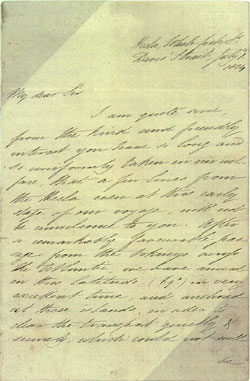 Hecla, Whale
Davis' Strait, July
1824
My dear Sir
I am quite sure
from the kind and friendly
interest you have so long and
so uniformly taken in my wel
fare, that a few lines from
the Hecla even at this early
stage of our voyage, will not
be unwelcome to you. After
a remarkably favourable pas
sage from the Orkneys across
the Atlantic, we have arrived
in this latitude in very
excellent time, and anchored
at these islands, in order to
clear the transport quickly &
securely, which could not well